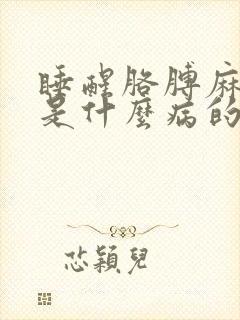 睡醒胳膊麻
是什麼病的
芯穎兒